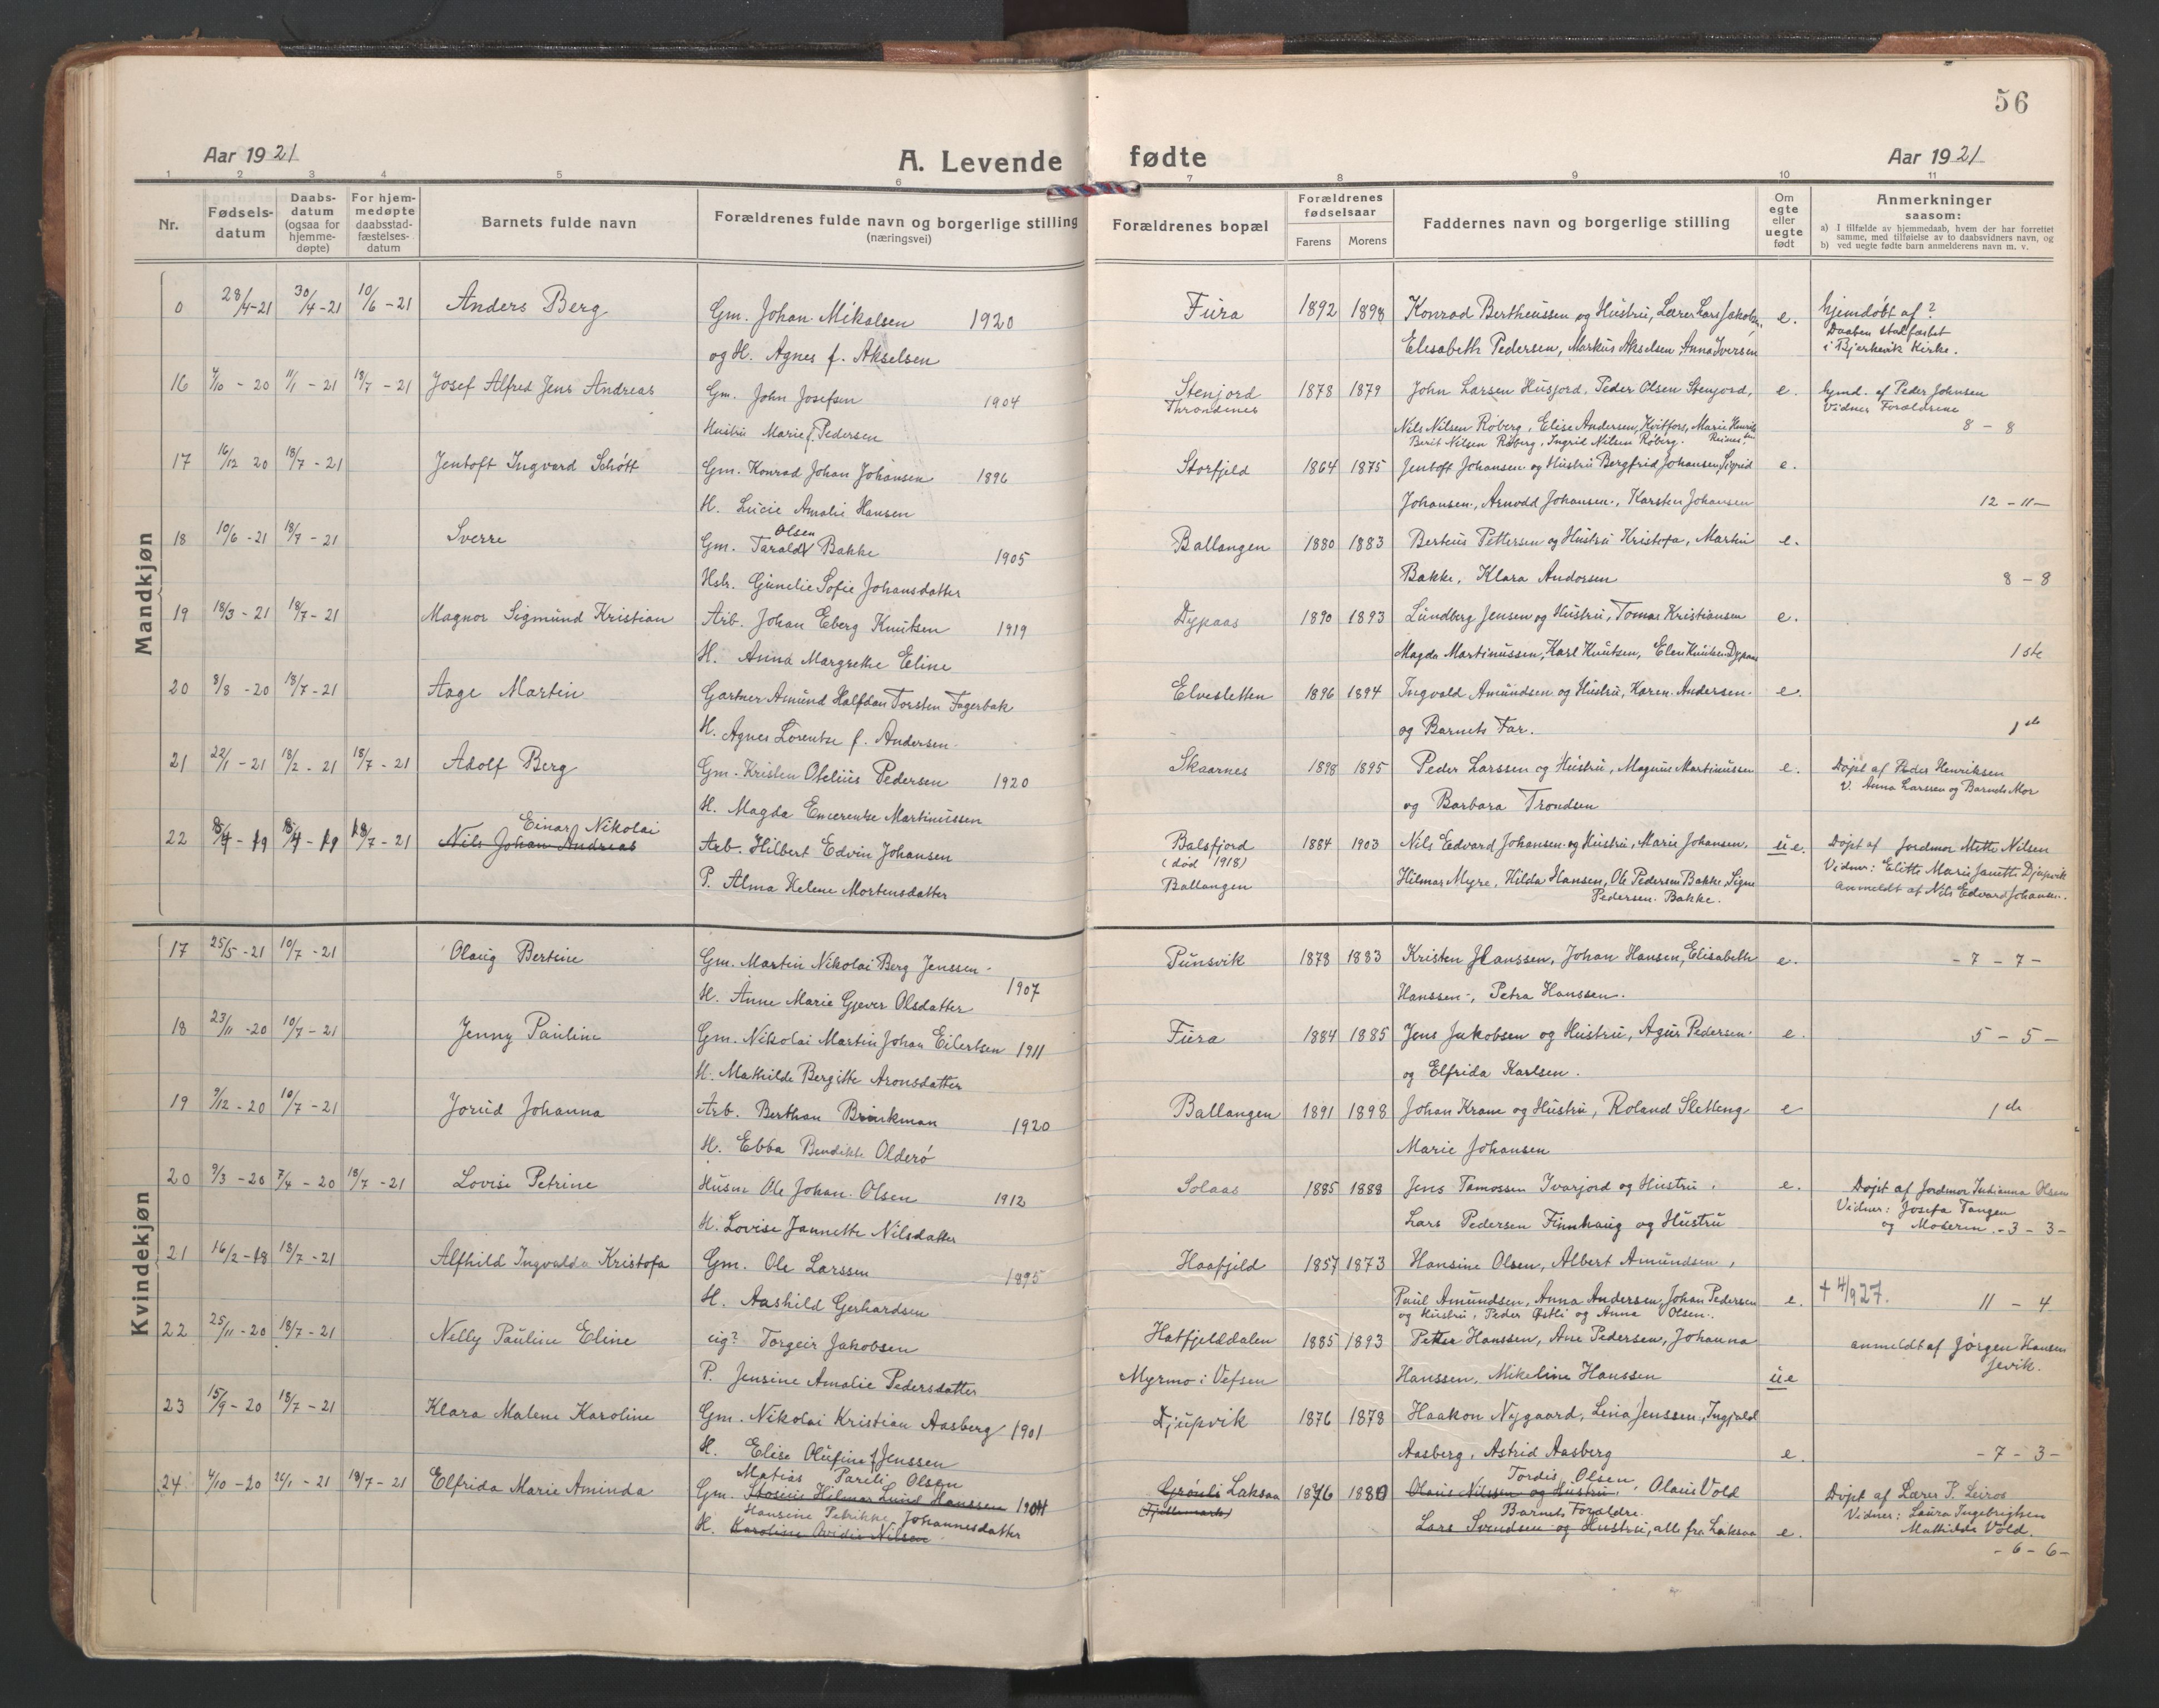 56
Aar 1921
A. Levende fødte
Aar 1921
1 2 3 4 5 6 7 8 9 10 11
Nr.
Fødsels-datum
Daabs-datum (ogsaa for hjemme-døpte)
For hjem-medøpte daabsstad-fæstelses-datum
Barnets fulde navn
Forældrenes fulde navn og borgerlige stilling (næringsvei)
Forældrenes bopæl
Forældrenes fødselsaar
Farens Morens
Faddernes navn og borgerlige stilling
Om egte eller uegte født
Anmerkninger saasom:
a) I tilfælde av hjemmedaab, hvem der har forrettet samme, med tilføielse av to daabsvidners navn, og
b) ved uegte fødte barn anmelderens navn m. v.
Mandkjøn
0 28/4-21 30/4-21 10/6-21 Anders Berg Gm. Johan Mikalsen 1920 Fura 1892 1898 Konrad Bertheussen og Hustru, Lærer Lars Jakobs. e. hjemdøbt af?
og H. Agnes f. Akselsen Elisabeth Pedersen, Markus Akselsen, Anna Iversen Daaben stadfæstet
i Bjerkevik Kirke.
16 4/10-20 11/1-21 18/7-21 Josef Alfred Jens Andreas Gm. John Josefsen 1904 Stenjord 1878 1879 John Larsen Husjord, Peder Olsen Stenjord, e. hjmd. af Peder Johnsen
Throndenes Vidner Forældrene
Hustru Marie f. Pedersen Nils Nilsen Røberg, Elise Andersen, Kvitfors, Marie Henrik 8 - 8
Berit Nilsen Røberg, Ingrid Nilsen Røberg. Reines.
17 16/12 20 18/7-21 Jentoft Ingvard Schøtt Gm. Konrad Johan Johansen 1896 Storfjeld 1864 1875 Jentoft Johansen og Hustru Bergfrid Johansen, Sigrid e.
H. Lucie Amalie Hansen Johansen, Arnodd Johansen, Karsten Johansen 12 - 11 -
18 10/6-21 18/7-21 Sverre Gm. Tarald Olsen Bakke 1905 Ballangen 1880 1883 Berteus Pettersen og Hustru Kristofa, Martin e.
Hstr. Gunelie Sofie Johansdatter Bakke, Klara Andorsen 8 - 8
19 18/3-21 18/7-21 Magnor Sigmund Kristian Arb. Johan Eberg Knutsen 1919 Dypaas 1890 1893 Lundberg Jensen og Hustru, Tomas Kristiansen e.
H. Anna Margrethe Eline Magda Martinussen, Karl Knutsen, Elen Knutsen Dypaas 1 ste
20 8/8-20 18/7-21 Aage Martin Gartner Amund Halfdan Torsten Fagerbak Elvesletten 1896 1894 Ingvald Amundsen og Hustru, Karen Andersen e.
H. Agnes Lorentse f. Andersen. og Barnets Far. 1 ste
21 22/1-21 18/2-21 18/7-21 Adolf Berg Gm. Kristen Otelius Pedersen 1920 Skaarnes 1898 1895 Peder Larssen og Hustru, Magnus Martinussen e. Døpt af Peder Henriksen
H. Magda Emerentse Martinussen og Barbara Trondsen V. Anna Larssen og Barnets Mor
22 18/7-21 Einar Nikolai Nils Johan Andreas Arb. Hilbert Edvin Johansen Balsfjord 1884 1903 Nils Edvard Johansen og Hustru, Marie Johansen, u e. Døpt af Jordmor Mette Nilsen
(død 1918) Vidner: Elitte Marie Janette Djupvik
P. Alma Helene Mortensdatter Ballangen Hilmar Myre, Hilda Hansen, Ole Pedersen Bakke, Signe Anmeldt af Nils Edvard Johansen.
Pedersen Bakke.
Kvindekjøn
17 25/5-21 10/7-21 Olaug Bertine Gm. Martin Nikolai Berg Jenssen Punsvik 1878 1883 Kristen Hanssen, Johan Hansen, Elisabeth e. - 7 - 7 -
H. Anne Marie Gjever Olsdatter 1907 Hanssen, Petra Hanssen.
18 23/11-20 10/7-21 Jenny Pauline Gm. Nikolai Martin Johan Eilertsen 1911 Fura 1884 1885 Jens Jakobsen og Hustru, Agur Pedersen e. 5 - 5 -
H. Mathilde Bergitte Aronsdatter og Elfrida Karlsen.
19 9/12-20 10/7-21 Jorid Johanna Arb. Berthan Brinkman 1920 Ballangen 1891 1898 Johan Krane og Hustru, Roland Sletteng e 1 ste
H. Ebba Bendikte Olderø Marie Johansen
20 9/3-20 7/4-20 18/7-21 Lovise Petrine Husm Ole Johan Olsen 1912 Solaas 1885 1888 Jens Tomassen Ivarjord og Hustru, e. Døpt af Jordmor Indianna Olsen
H. Lovise Jannette Nilsdatter Lars Pedersen Finnhaug og Hustru Vidner: Josefa Tangen
og Moderen - 3 - 3 -
21 16/2-18 18/7-21 Alfhild Ingvalda Kristofa Gm. Ole Larssen 1895 Haafjeld 1857 1873 Hansine Olsen, Albert Amundsen,
H. Aashild Gerhardsen Paul Amundsen, Anna Andersen, Johan Pedersen e. † 4/9 27. 11 - 4
og Hustru, Peder Østli og Anna Olsen.
22 25/11-20 18/7-21 Nelly Pauline Eline eig? Torgeir Jakobsen Hatfjelddalen 1885 1893 Petter Hanssen, Ane Pedersen, Johanna anmeldt af Jörgen Hansen
P. Jensine Amalie Pedersdatter Myrmo i Vefsen Hanssen, Mikeline Hanssen u e Jevik.
23 15/9-20 18/7-21 Klara Malene Karoline Gm. Nikolai Kristian Aasberg 1901 Djupvik 1876 1878 Haakon Nygaard, Lina Jenssen, Ingjald
H. Elise Olufine f Jenssen Aasberg, Astrid Aasberg e. - 7 - 3 -
24 4/10-20 18/7-21 Elfrida Marie Aminda Matias Pareli Olsen Gm. Hilmar Lund Hanssen Laksaa 1876 1880 Tordis Olsen Olaus Nilssen og Hustru, Olaus Vold Døpt af Lærer P. Leiros
Hansine Petrikke Johannesdatter Barnets Forældre. Vidner: Laura Ingebrigtsen
H. Karoline Ovidie Nilsen Lars Svendsen og Hustru, alle fra Laksaa e. Mathilde Vold.
- 6 - 6 -